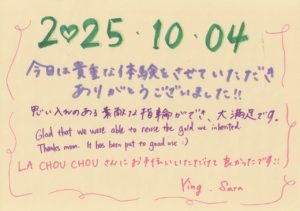 2♡25・10・04
今日は貴重な体験をさせていただき
ありがとうございました!!
思い入れのある素敵な指輪ができ、大満足です。
Glad that we were able to reuse the gold we inherited.
Thanks mom. It has been put to good use :)
LA CHOU CHOU さんにお手伝いいただけて良かったです!!
Ying . Sara